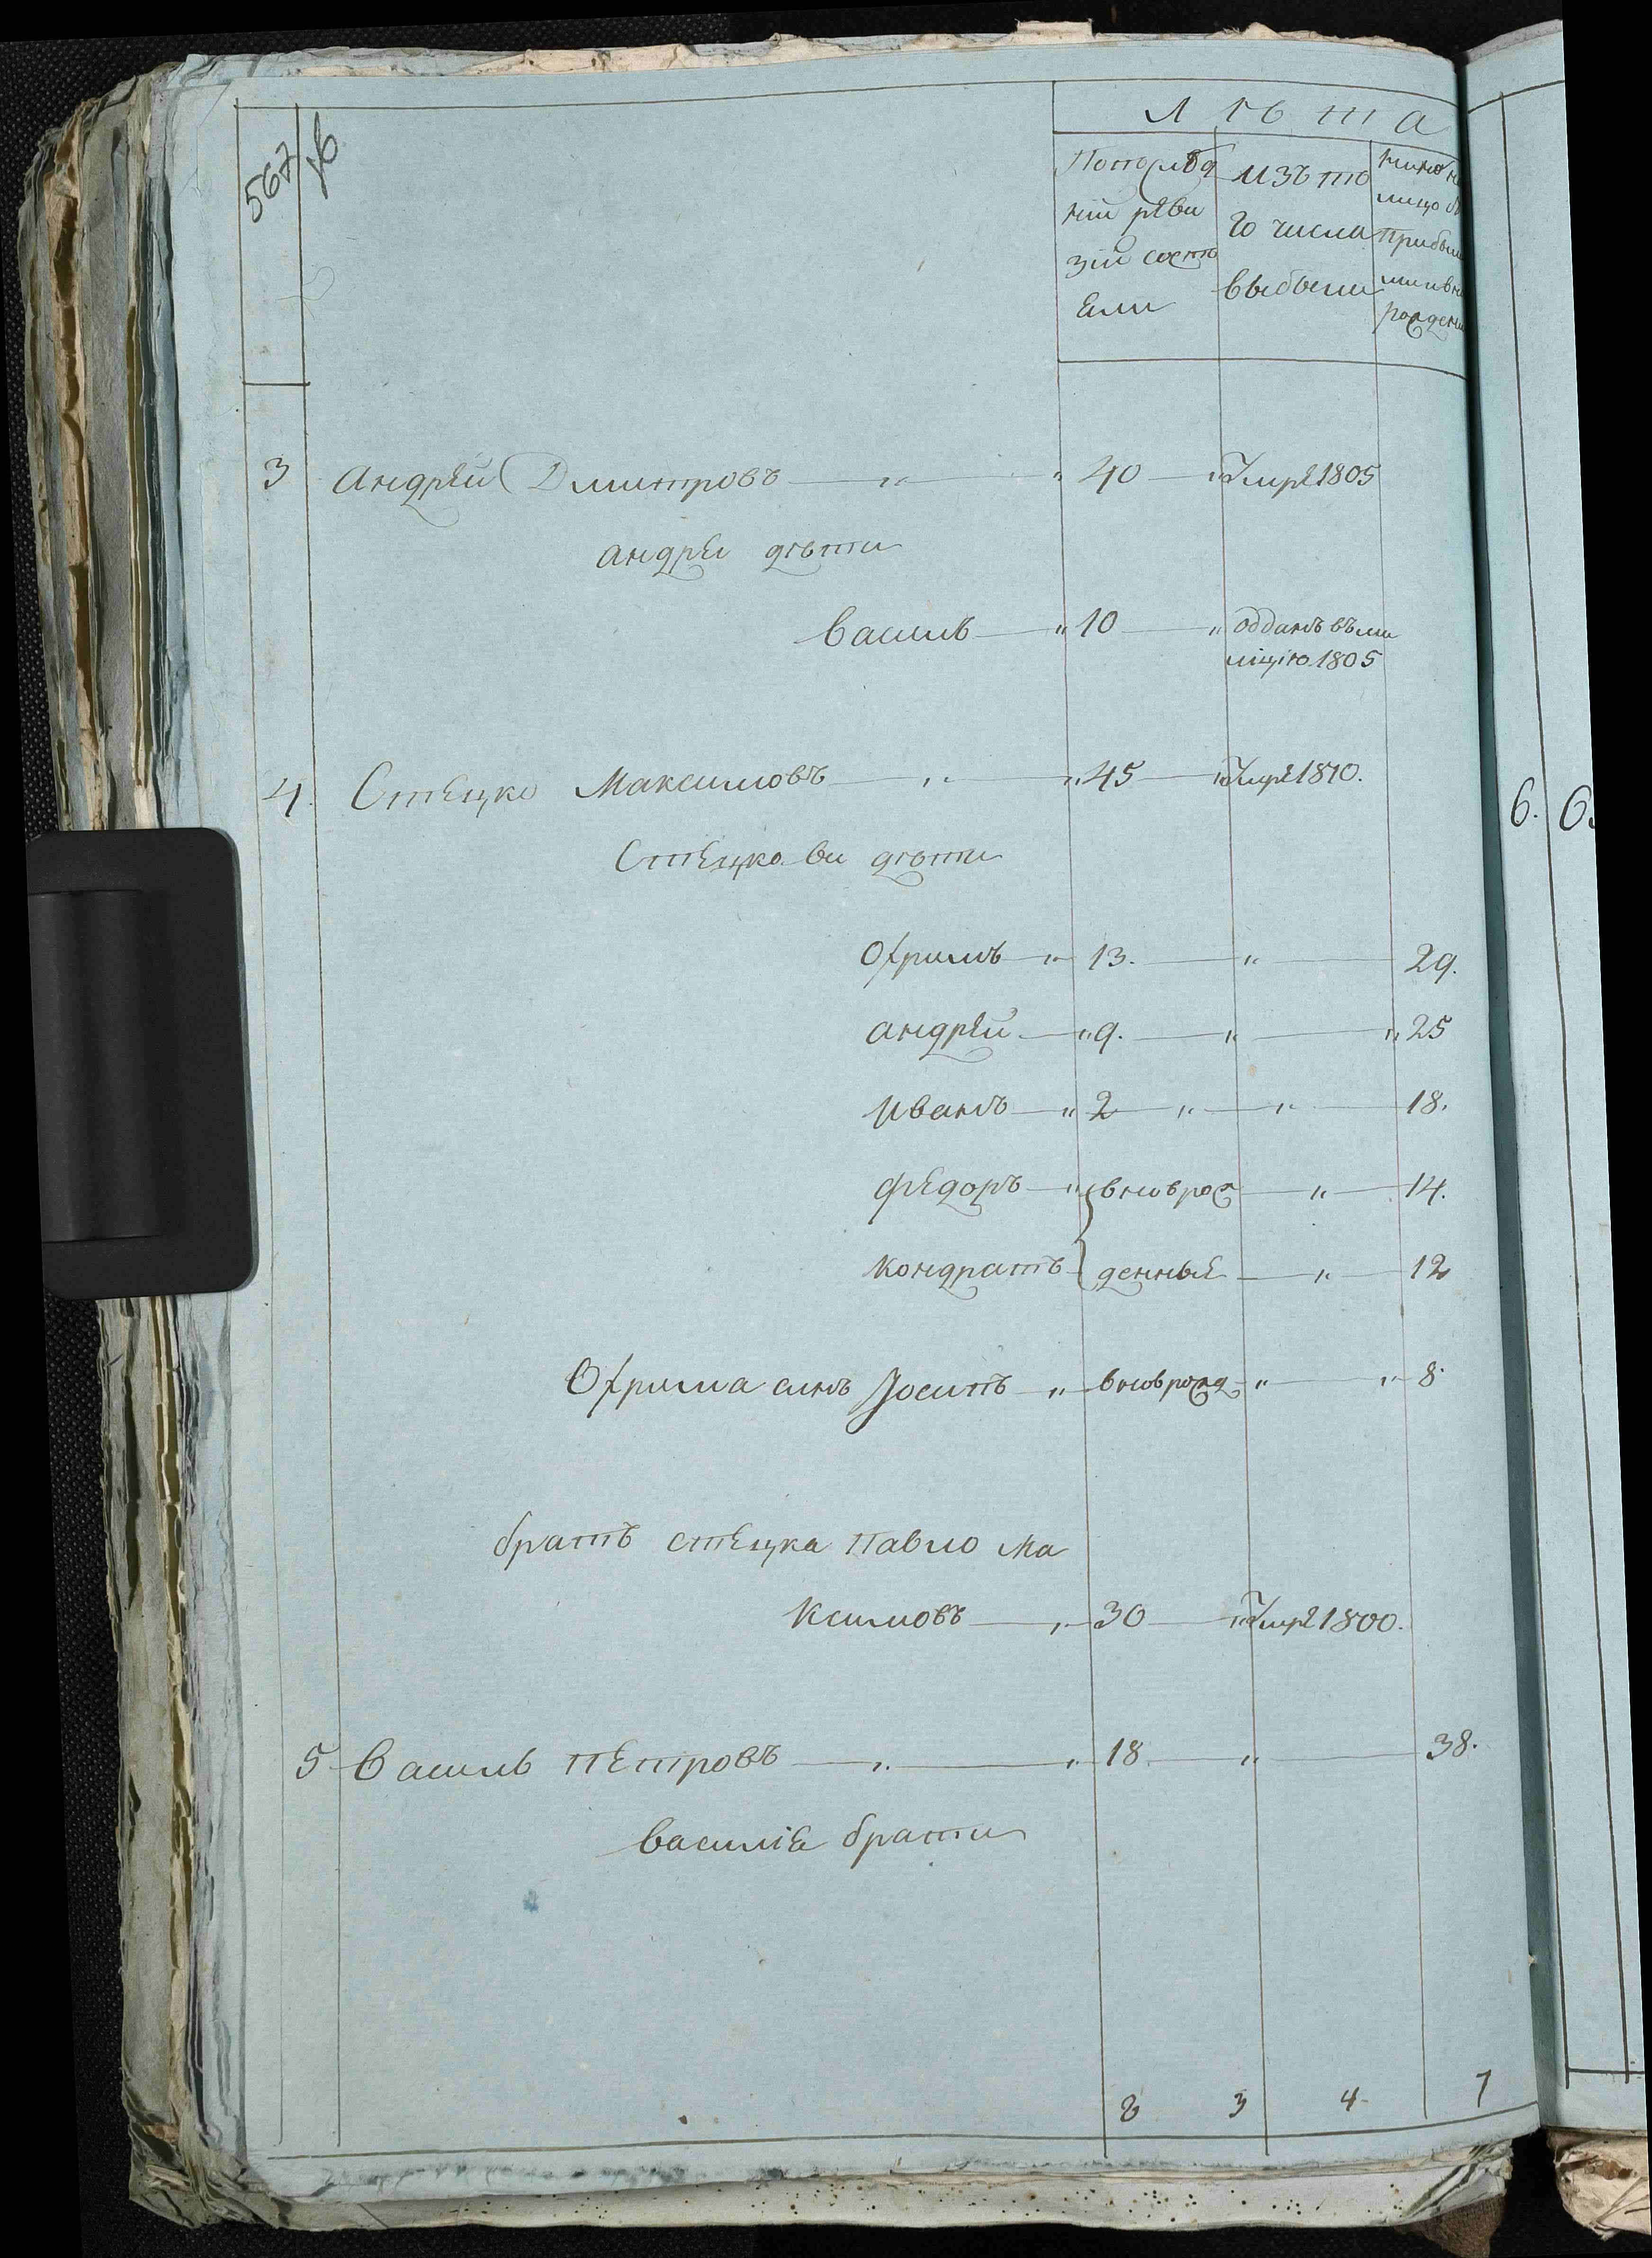 567 об
Лѣта
По послѣд изъ то
ній реви го числа
зіи состо выбыли
яли
3 Андрей Дмитровъ „ „ 40 „ умре 1805
Андрея дѣти
Василь „ 10 „ одданъ въ ми
ліцію 1805
4. Стецко Максимовъ „ „ 45 „ умре 1810.
Стецкови дѣти
Охримъ „ 13. „ 29.
Андрей „ 9. „ „ 25
Иванъ „ 2 „ „ 18.
Федоръ „ вновь рож „ 14.
Кондратъ денные „ 12
Охрима синъ Іосипъ „ вновь рожд „ „ 8
братъ Стецка Павло Ма
ксимовъ „ 30 „ умре 1800.
5 Василь Петровъ „ „ 18 „ 38.
Василіа брати
8 3 4 7
6.